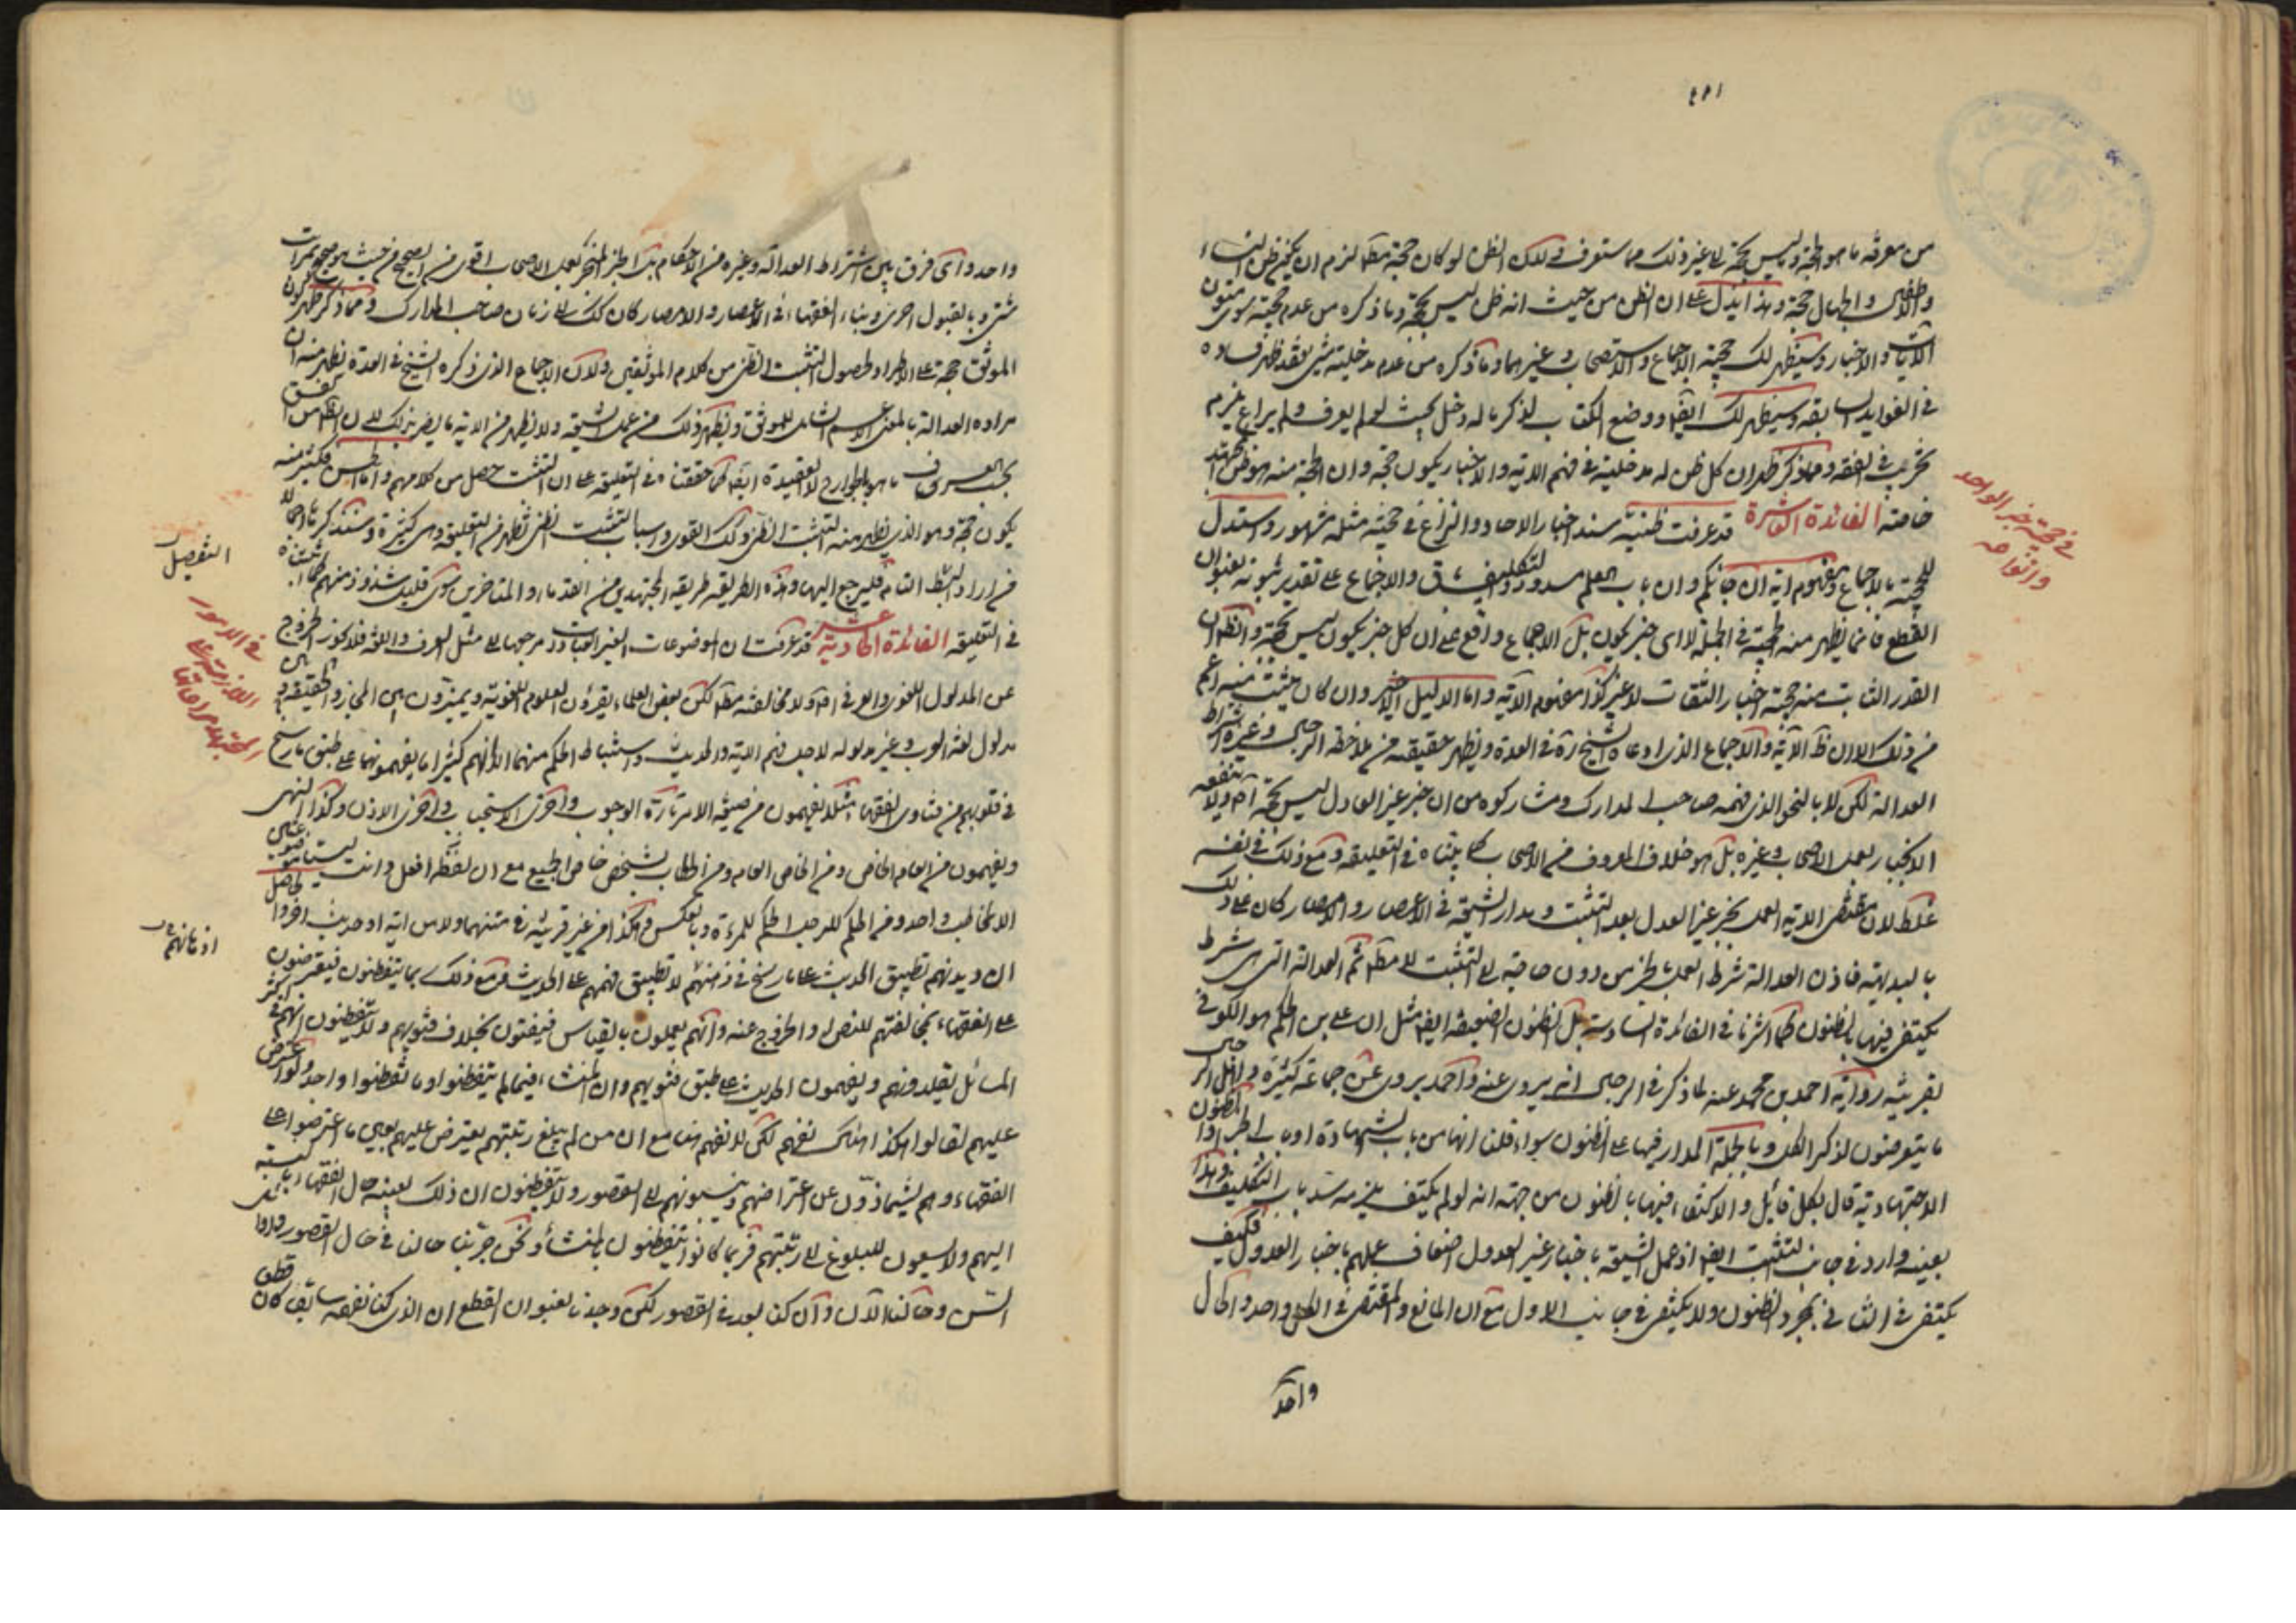 من معرفة ما هو الحجة وليس بحجة الى غير ذلك مما ستعرف وكذلك الظن لو كان حجة مطلقا لزم ان يكون ظن النساء
والاطفال والجهال حجة وهذا يدل على ان الظن من حيث انه ظن ليس بحجة وما ذكره من عدم حجية سوى متون
الآيات والاخبار وسيظهر لك حجية الاجماع والاستصحاب وغيرهما وما ذكره من عدم مدخلية شئ فقد ظهر فساده
في الفوايد السابقة وسيظهر لك ايضا ووضع الكتاب لذكر ما له دخل بحيث لو لم يعرف ولم يراع يلزم
تخريب في الفقه ومما ذكر ظهر ان كل ظن له مدخلية في فهم الاية والاخبار يكون حجة وان الحجة منه هو ظن المجتهد
خاصة الفائدة العاشرة قد عرفت ظنية سند اخبار الاحاد والنزاع في حجية مثله مشهور واستدل
في حجية خبر الواحد
وانواعه
للحجية بالاجماع ومفهوم اية ان جائكم وان باب العلم مسدود والتكليف باق والاجماع على تقدير ثبوته بعنوان
القطع فانما يظهر منه الحجية في الجملة لا اى خبر يكون بل الاجماع واقع على ان كل خبر يكون ليس بحجة والظاهر ان
القدر الثابت منه حجية اخبار الثقات لا غير وكذا مفهوم الآية واما الدليل الاخير وان كان يثبت منه اعم
من ذلك الا ان ظ الآية والاجماع الذى ادعاه الشيخ ره في العدة ويظهر حقيقته من ملاحظة الرجال وغيره اشتراط
العدالة لكن لا بالنحو الذى فهمه صاحب المدارك ومشاركوه من ان خبر غير العادل ليس بحجة اصلا ولا ينفعه
الانجبار بعمل الاصحاب وغيره بل هو خلاف المعروف من الاصحاب كما بيناه في التعليقة ومع ذلك في نفسه
غلط لان مقتضى الاية العمل بخبر غير العدل بعد التثبت ومدار الشيعة في الاعصار والامصار كان على ذلك
بالبديهة فاذن العدالة شرط العمل بالخبر من دون حاجة الى التثبت لا مطلقا ثم العدالة التى هى شرط
يكتفى فيها بالظنون كما اشرنا في الفائدة السادسة بل الظنون الضعيفة ايضا مثل ان على بن الحكم هو الكوفى
بقرينة رواية احمد بن محمد عنه لما ذكر في الرجال انه يروى عنه واحمد يروى عن جماعة كثيرة
ما يتعرضون لذكر الكل وبالجملة المدار فيها على الظنون سواء قلنا انها من باب الشهادة او باب الخبر او الظنون
الاجتهادية قال بكل قائل والاكتفاء فيها بالظنون من جهة انه لو لم يكتف يلزم سد باب التكليف وهذا
بعينه وارد في جانب التثبت ايضا اذ عمل الشيعة باخبار غير العدول اضعاف عملهم باخبار العدول فكيف
يكتفى في الثانى بمجرد الظنون ولا يكتفى في جانب الاول مع ان المانع والمقتضى في الكل واحد والحال
واحد
واحد واى فرق بين اشتراط العدالة وغيره من الاحكام بل الخبر المنجبر بعمل الاصحاب اقوى من الصحيح من حيث هو صحيح بمرات
شتى وبالقبول احرى وبناء الفقهاء في الاعصار والامصار كان كذلك الى زمان صاحب المدارك ومما ذكر ظهر كون
الموثق حجة على الاطراد لحصول التثبت الظنى من كلام الموثقين ولان الاجماع الذى ذكره الشيخ في العدة يظهر منه ان
مراده العدالة بالمعنى الاعم الشامل للموثق ويظهر ذلك من عمل الشيعة ولا يظهر من الاية ما يضر بذلك لان الظاهر من الفسق
بحسب العرف ما هو بالجوارح لا العقيدة ايضا كما حققناه في التعليقة على ان التثبت حصل من كلامهم واما الحسن فكثير منه
يكون حجة وهو الذى يظهر منه التثبت الظنى وكذلك القوى واسباب التثبت الظنى تظهر من التعليقة وهى كثيرة وسنذكرها اجمالا
من اراد البسط التام فليرجع اليها وهذه الطريقة طريقة المجتهدين من القدماء والمتاخرين سوى قليل شذوذ منهم كما اثبتناه
التفصيل
في التعليقة الفائدة الحادية عشر قد عرفت ان الموضوعات الغير العبادات مرجعها الى مثل العرف واللغة فلا يجوز الخروج
في الامور
اللازمة على
المجتهد مراعاتها
عن المدلول اللغوى والعرفى اصلا ولا مخالفته مطلقا لكن بعض العلماء يقرؤن العلوم اللغوية ويميزون بين المجاز والحقيقة و
مدلول لغة العرب وغير مدلوله لاجل فهم الاية والحديث واستنباط الحكم منهما الا انهم كثيرا ما يفهمونهما على طبق ما رسخ
في قلوبهم من فتاوى الفقهاء مثلا يفهمون من صيغة الامر تارة الوجوب واخرى الاستحباب واخرى الاذن وكذا النهى
ويفهمون من العام الخاص ومن الخاص العام ومن الخطاب بشخص خاص الجميع مع ان لفظة افعل وانت ليستا
الا لمخاطب واحد ومن الحكم للرجل الحكم للمرءة وبالعكس وهكذا من غير قرينة في متنهما ولا من اية او حديث اخر والحاصل
ان ديدنهم تطبيق الحديث على ما رسخ في ذهنهم لا تطبيق فهمهم على الحديث ومع ذلك ربما يتفطنون فيعترضون
اذهانهم
على الفقهاء بمخالفتهم للنصوص والخروج عنه وانهم يعملون بالقياس فيفتون بخلاف فتويهم ولا يتفطنون انهم في اكثر
المسائل يقلدونهم ويفهمون الحديث على طبق فتويهم وان المنشاء فيما لم يتفطنوا وما تفطنوا واحد ولو اعترض
عليهم لقالوا هكذا هناك نفهم لكن لا نفهم هنا مع ان من لم يبلغ رتبتهم يعترض عليهم بعين ما اعترضوا على
الفقهاء وهم يشمأزون عن اعتراضهم وينسبونهم الى القصور ولا يتفطنون ان ذلك بعينه حال الفقهاء بالنسبة
اليهم ولا يسعون للبلوغ الى رتبتهم فربما كانوا يتفطنون بالمنشأ ونحن جربنا حالنا في حال القصور
السن وحالنا الآن وان كنا بعد في القصور لكن وجدنا بعنوان القطع ان الذى كنا نفهمه سابقا كان